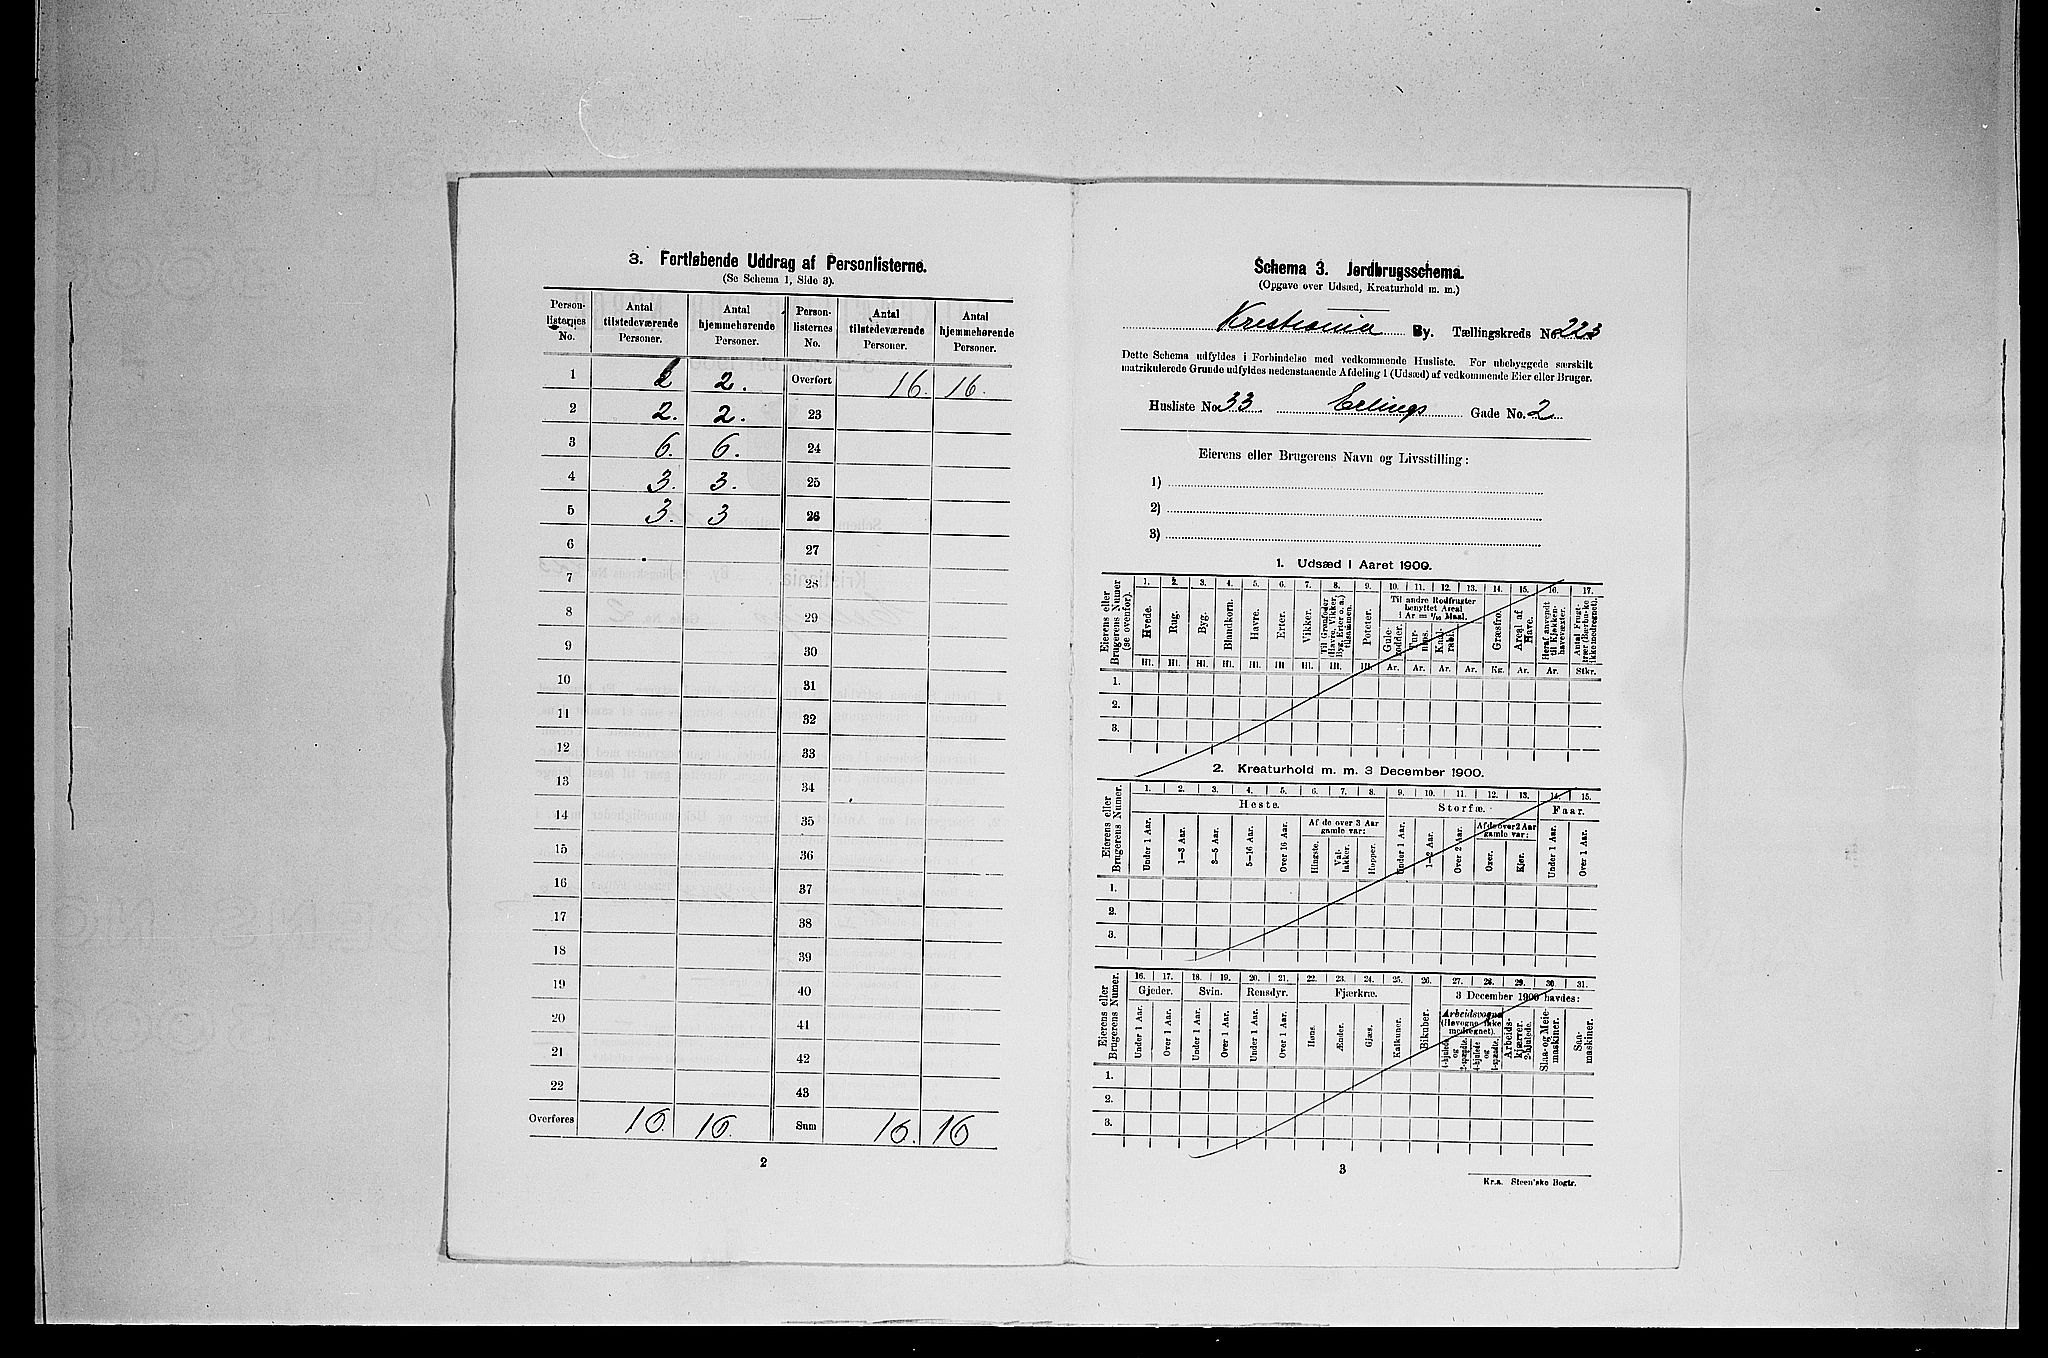 3. Fortløbende Uddrag af Personlisterne.
(Se Schema 1, Side 3).
Person-listernes No. Antal tilstedeværende Personer. Antal hjemmehørende Personer. Person-listernes No. Antal tilstedeværende Personer. Antal hjemmehørende Personer.
1 2 2. Overført 16. 16.
2 2. 2. 23
3 6. 6. 24
4 3. 3. 25
5 3. 3 26
6 27
7 28
8 29
9 30
10 31
11 32
12 33
13 34
14 35
15 36
16 37
17 38
18 39
19 40
20 41
21 42
22 43
Overføres 16. 16. Sum 16. 16
2
Schema 3. Jordbrugsschema.
(Opgave over Udsæd, Kreaturhold m. m.)
Kristiania By. Tællingskreds No. 223
Dette Schema udfyldes i Forbindelse med vedkommende Husliste. For ubebyggede særskilt
matrikulerede Grunde udfyldes nedenstaaende Afdeling 1 (Udsæd) af vedkommende Eier eller Bruger.
Husliste No. 33. Erlings Gade No. 2
Eierens eller Brugerens Navn og Livsstilling:
1)
2)
3)
1. Udsæd i Aaret 1900.
Eierens eller Brugerens Numer (se ovenfor).
1. 2. 3. 4. 5. 6. 7. 8. 9. 10. 11. 12. 13. 14. 15. 16. 17.
Hvede. Rug. Byg. Blandkorn. Havre. Erter. Vikker. Til Grønfoder (Havre, Vikker, Byg, Erter o. a.) tilsammen. Poteter.
Til andre Rodfrugter benyttet Areal 1 Ar = 1/10 Maal.
Gule-rødder. Tur-nips. Kaal-rabi. Græsfrø. Areal af Have. Heraf anvendt til Kjøkken-havevæxter. Antal Frugt-trær (Bærbuske ikke medregnet).
Hl. Hl. Hl. Hl. Hl. Hl. Hl. Hl. Hl. Ar. Ar. Ar. Ar. Kg. Ar. Ar. Stkr.
1.
2.
3.
2. Kreaturhold m. m. 3 December 1900.
Eierens eller Brugerens Numer.
1. 2. 3. 4. 5. 6. 7. 8. 9. 10. 11. 12. 13. 14. 15.
Heste. Storfæ. Faar.
Af de over 3 Aar gamle var: Af de over 2 Aar gamle var:
Under 1 Aar. 1—3 Aar. 3—5 Aar. 5—16 Aar. Over 16 Aar. Hingste. Val-lakker. Hopper. Under 1 Aar. 1—2 Aar. Over 2 Aar. Oxer. Kjør. Under 1 Aar. Over 1 Aar.
1.
2.
3.
Eierens eller Brugerens Numer.
16. 17. 18. 19. 20. 21. 22. 23. 24. 25. 26. 27. 28. 29. 30. 31.
Gjeder. Svin. Rensdyr. Fjærkræ. 3 December 1900 havdes:
Under 1 Aar. Over 1 Aar. Under 1 Aar. Over 1 Aar. Under 1 Aar. Over 1 Aar. Høns. Ænder. Gjæs. Kalkuner. Bikuber.
Arbeidsvogne (Høvogne ikke medregnet). 4-hjulede og 2-spændte. 4-hjulede og 1-spændte. Arbeids-kjærrer, 2-hjulede. Slaa- og Meie-maskiner. Saa-maskiner.
1.
2.
3.
3
Kr.a. Steen'ske Bogtr.